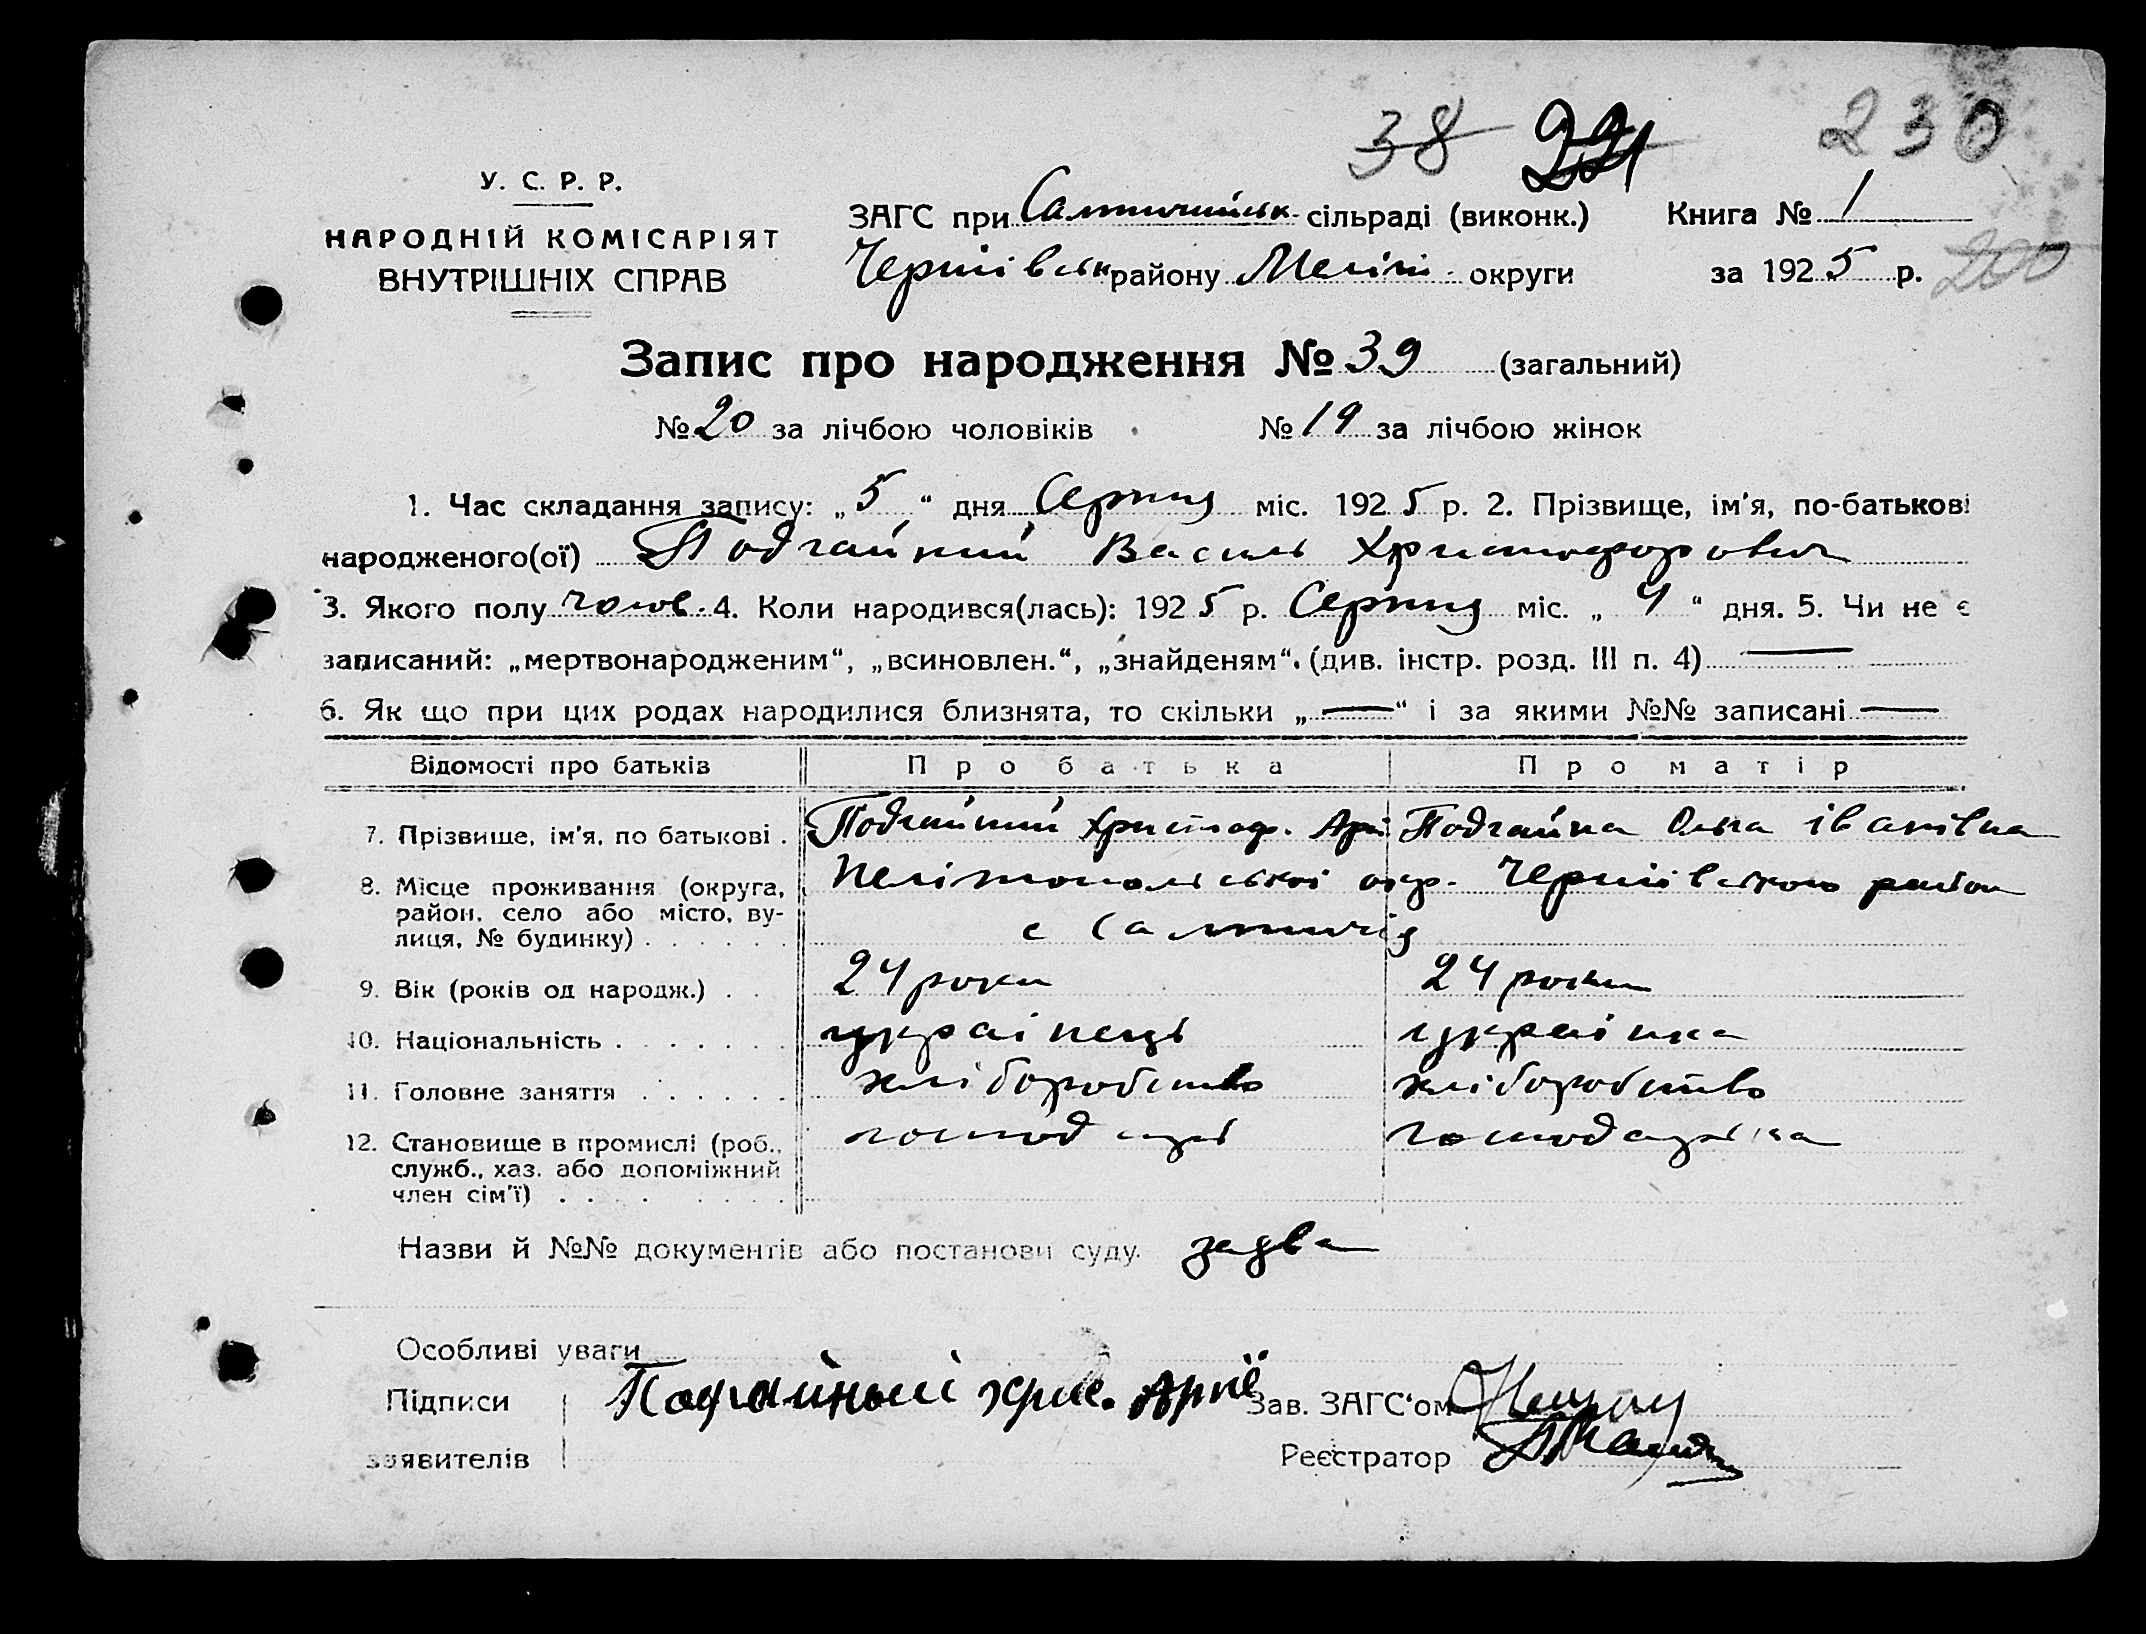 38 221 230
У. С. Р. Р.
НАРОДНІЙ КОМІСАРІЯТ
ВНУТРІШНІХ СПРАВ
ЗАГС при Салтичийськ. сільраді (виконк.) Книга № 1
Чернівськ району Меліт. округи за 1925 р. 200
Запис про народження № 39 (загальний)
№ 20 за лічбою чоловіків № 19 за лічбою жінок
1. Час складання запису: „5“ дня Серпня міс. 1925 р. 2. Прізвище, ім'я, по-батькові
народженого(ої) Подгайний Василь Христофорович
3. Якого полу чолов. 4. Коли народився(лась): 1925 р. Серпня міс. „4“ дня. 5. Чи не є
записаний: „мертвонародженим“, „всиновлен.“, „знайденям“. (див. інстр. розд. III п. 4) —
6. Як що при цих родах народилися близнята, то скільки „—“ і за якими №№ записані —
Відомості про батьків Про батька Про матір
7. Прізвище, ім'я, по батькові . Подгайний Христоф. Подгайна Ольга Іванівна
8. Місце проживання (округа, район, село або місто, вулиця, № будинку) . . . . . . Мелітопольської окр. Чернівського район
с Салтичія
9. Вік (років од народж.) . . 24 роки 24 роки
10. Національність . . . . . . . українець українка
11. Головне заняття . . . . . . хліборобство хліборобство
12. Становище в промислі (роб., служб., хаз. або допоміжний член сім'ї) . . . . . . . . господарь господарька
Назви й №№ документів або постанови суду. заява
Особливі уваги
Підписи Подгайный Хрис. Зав. ЗАГС'ом
заявителів Реєстратор